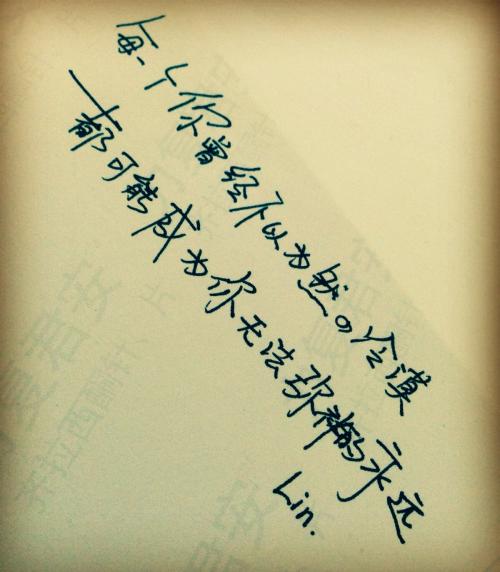 每一个你曾经不以为然の冷漠
都可能成为你无法弥补的永远
Lin.